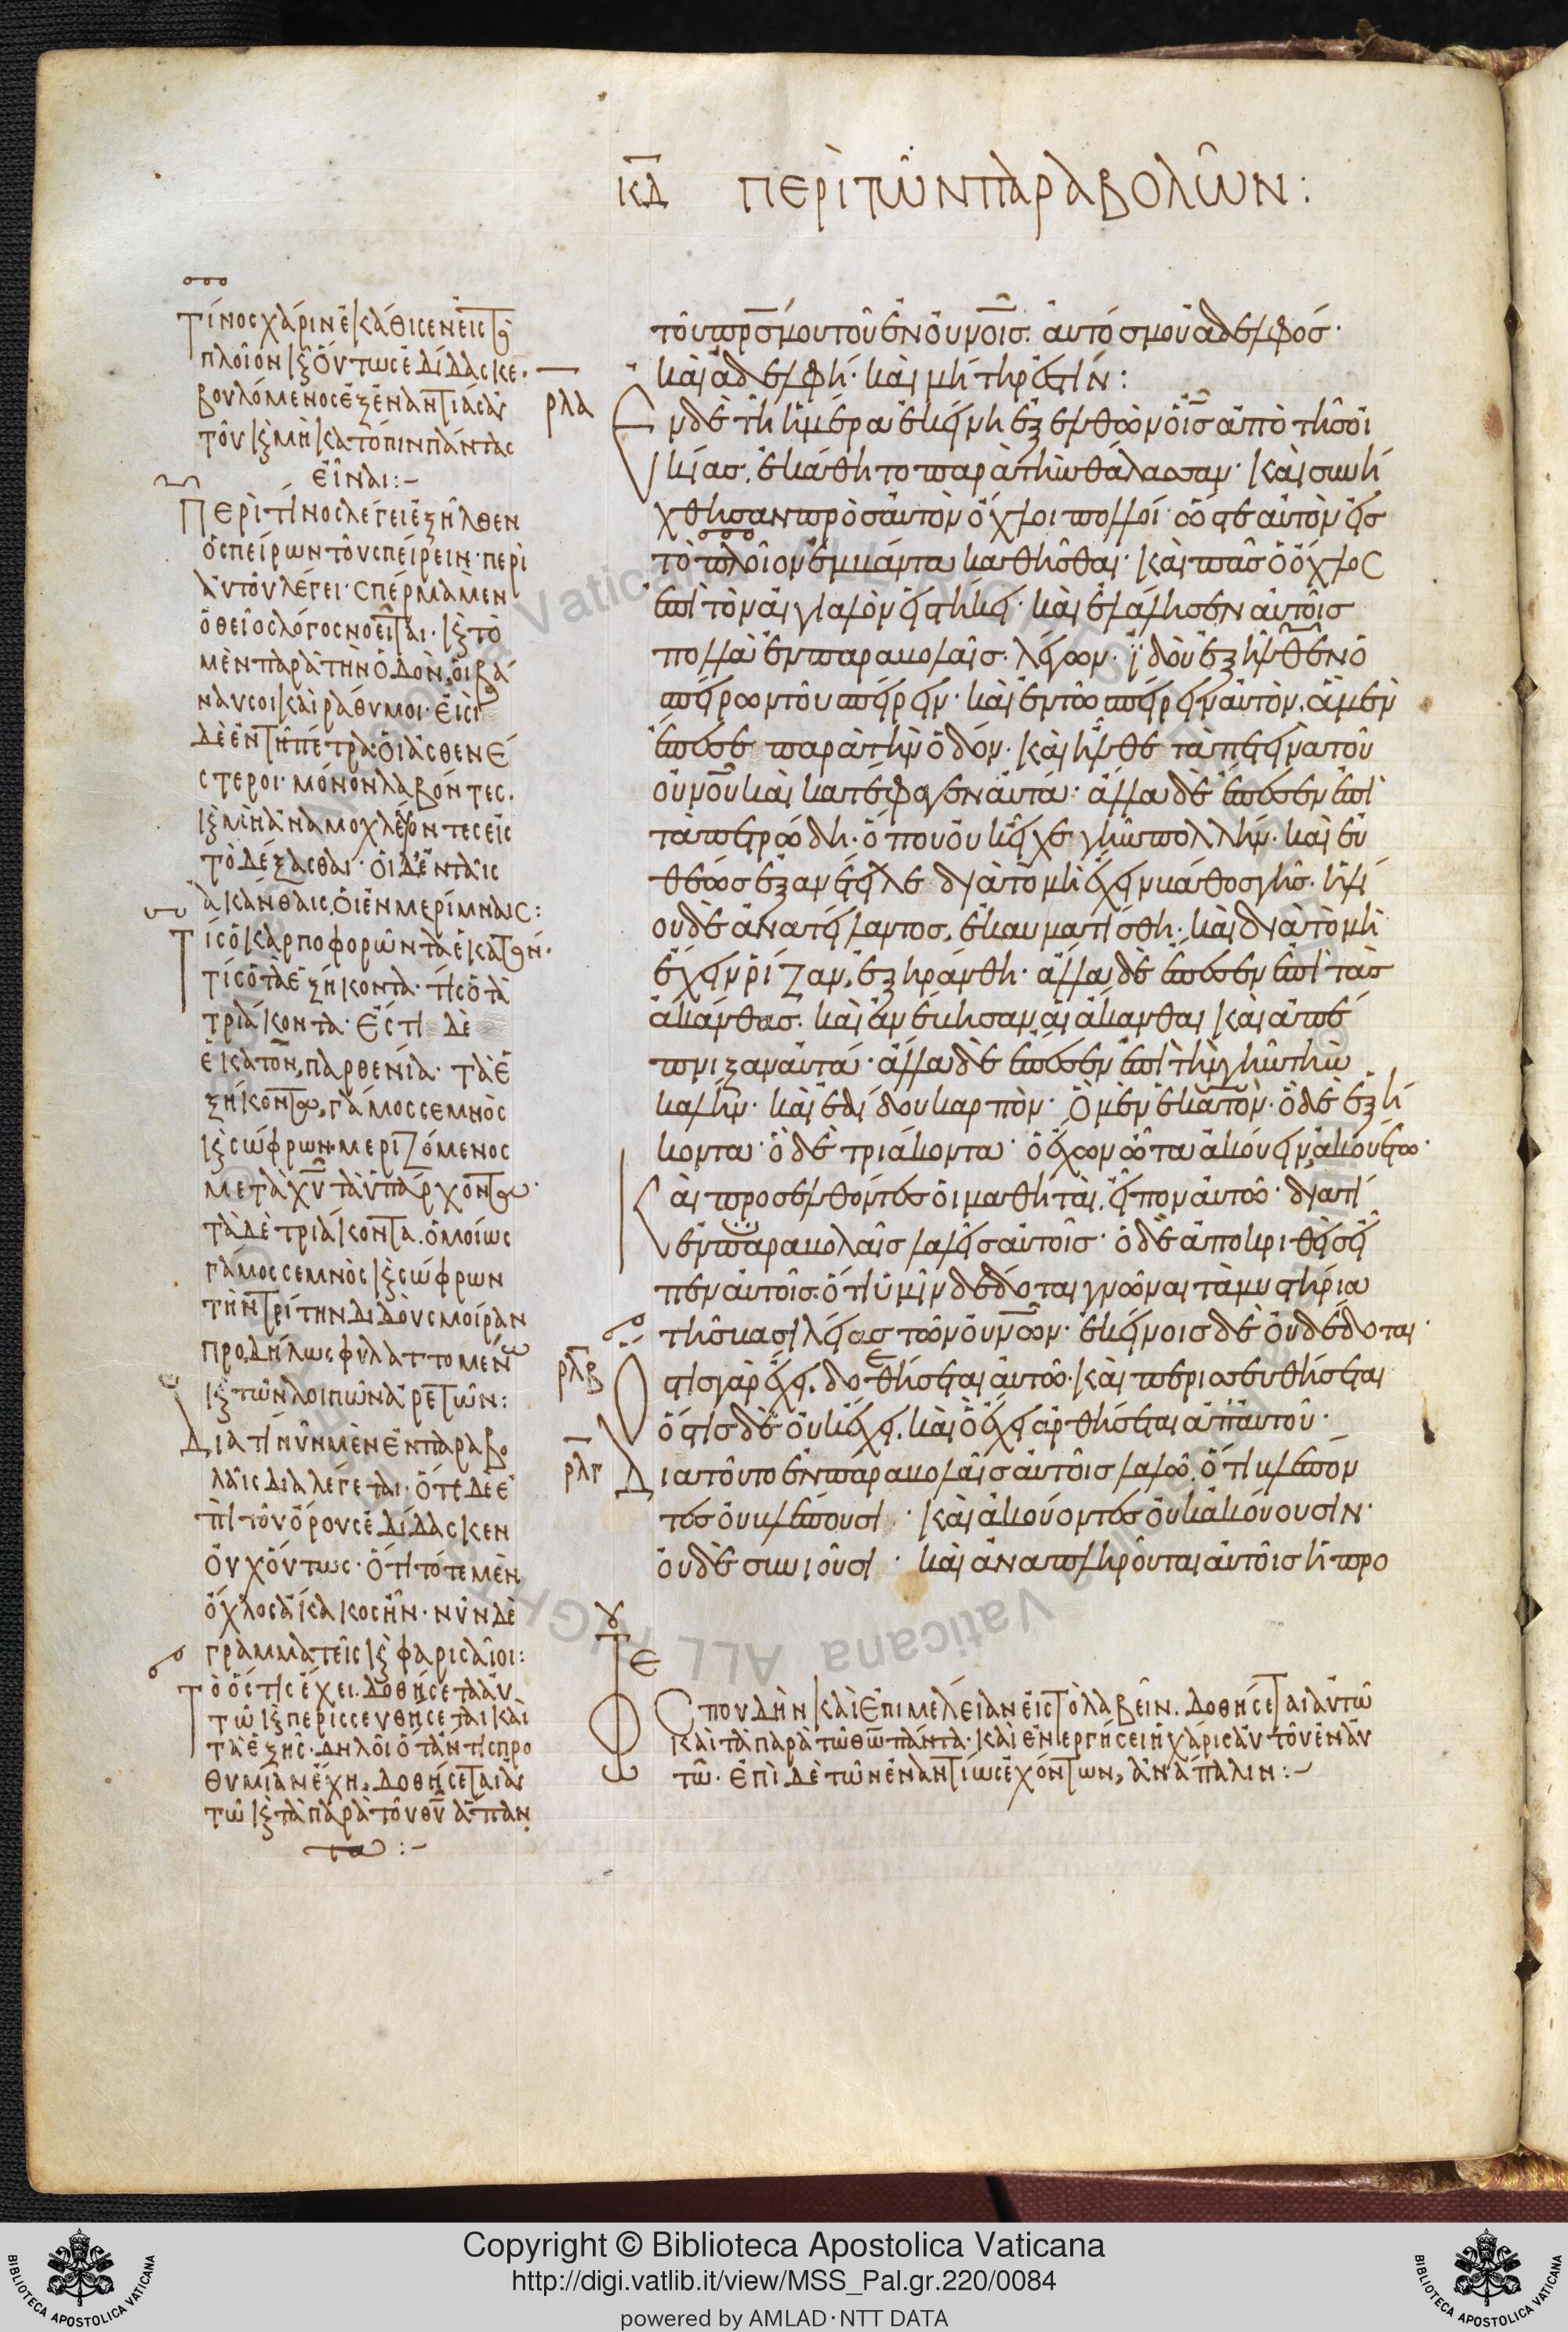 κδ περὶ τῶν παραβολῶν:
τίνος χάριν ἐκάθισεν εἰς τὸ
πλοῖον κ οὕτως ἐδίδασκε.
βουλόμενος ἐξεναντίας αὐ
τοῦ κ μὴ κατόπιν πάντας
εἶναι:-
Περὶ τίνος λέγει ἐξῆλθεν
ὁ σπείρων τοῦ σπείρειν· περὶ
αὐτοῦ λέγει· σπέρμα μὲν
ὁ θεῖος λόγος νοεῖται· κ τὸ
μὲν παρὰ τὴν ὁδὸν, οἱ βά
ναυσοι καὶ ράθυμοι· εἰσὶ
δὲ ἐν τῆ πέτρα οἱ ἀσθενέ
στεροι· μόνον λαβόντες.
κ μὴ ἀναμοχλεύοντες εἰς
τὸ δέξασθαι· οἱ δ' ἐν ταῖς
ἀκάνθαις, οἱ ἐν μερίμναις:
τίς ὁ καρποφορῶν τὰ ἑκατόν·
τίς ὁ τὰ ἑξήκοντα· τίς ὁ τὰ
τριάκοντα· ἔστι δὲ
ἑκατὸν, παρθενία· τὰ ἑ
ξήκοντα, γάμος σεμνὸς
κ σώφρων· μεριζόμενος
μετὰ χυ τὰ ὑπάρχοντα·
τὰ δὲ τριάκοντα. ὁμοίως
γάμος σεμνὸς κ σώφρων
τὴν τρίτην διδοὺς μοίραν
προδήλως φυλαττομένω
κ τῶν λοιπῶν ἀρετῶν:
Διατί νῦν μὲν ἐν παραβο
λαῖς διαλέγεται· ὅτε δὲ ἐ
πὶ τοῦ ὄρους ἐδίδασκεν
οὐχ οὕτως· ὅτι τότε μὲν
ὄχλος ἄκακος ἦν· νῦν δὲ
γραμματεῖς κ φαρισαῖοι:
τὸ ὅστις ἔχει. δοθήσεται αὐ
τῶ κ περισσευθήσεται καὶ
τὰ ἑξῆς· δηλοῖ ὅταν τις προ
θυμίαν ἔχη, δοθήσεται αὐ
τῶ κ τὰ παρὰ τοῦ θυ ἅπαν
τα:-
τοῦ πρς μου τοῦ ἐν οὐνοις. αὐτός μου ἀδελφός·
καὶ ἀδελφή· καὶ μήτηρ ἐστίν:
ρλα
Εν δὲ τῆ ἡμέρα ἐκείνη ἐξελθὼν ὁ ις ἀπὸ τῆς οἰ
κίας. ἐκάθητο παρὰ τὴν θάλασσαν· καὶ συνή
χθησαν πρὸς αὐτὸν ὄχλοι πολλοί· ὥστε αὐτὸν εἰς
τὸ πλοῖον ἐμβάντα καθῆσθαι· καὶ πᾶς ὁ ὄχλος
ἐπὶ τὸν αἰγιαλὸν εἱστήκει· καὶ ἐλάλησεν αὐτοῖς
πολλὰ ἐν παραβολαῖς. λέγων· ἰδοὺ ἐξῆλθεν ὁ
σπείρων τοῦ σπείρειν· καὶ ἐν τῶ σπείρειν αὐτὸν. ἃ μὲν
ἔπεσε παρὰ τὴν ὁδόν· καὶ ἦλθε τὰ πετεινὰ τοῦ
οὐνου καὶ κατέφαγεν αὐτά· ἄλλα δὲ ἔπεσεν ἐπὶ
τὰ πετρώδη· ὅπου οὐκ εἶχε γῆν πολλήν. καὶ εὐ
θέως ἐξανέτειλε διὰ τὸ μὴ ἔχειν βάθος γῆς· ἡλί
ου δὲ ἀνατείλαντος, ἐκαυματίσθη. καὶ διὰ τὸ μὴ
ἔχειν ρίζαν, ἐξηράνθη· ἄλλα δὲ ἔπεσεν ἐπὶ τὰς
ἀκάνθας. καὶ ἀνέβησαν αἱ ἄκανθαι καὶ ἀπέ
πνιξαν αὐτά· ἄλλα δὲ ἔπεσεν ἐπὶ τὴν γῆν τὴν
καλήν· καὶ ἐδίδου καρπὸν· ὃ μὲν ἑκατὸν. ὃ δὲ ἑξή
κοντα· ὃ δὲ τριάκοντα· ὁ ἔχων ὦτα ἀκούειν ἀκουέτω·
Και προσελθόντες οἱ μαθηταὶ. εἶπον αὐτῶ· διατί
ἐν παραβολαῖς λαλεῖς αὐτοῖς· ὁ δὲ ἀποκριθεὶς εἶ
πεν αὐτοῖς. ὅτι ὑμῖν δέδοται γνῶναι τὰ μυστήρια
τῆς βασιλείας τῶν οὐνων· ἐκείνοις δὲ οὐ δέδοται·
ρλβ
Οστις γὰρ ἔχει. δοθήσεται αὐτῶ. καὶ περισσευθήσεται
ὅστις δὲ οὐκ ἔχει. καὶ ὃ ἔχει ἀρθήσεται ἀπ' αὐτοῦ·
ρλγ
Διατοῦτο ἐν παραβολαῖς αὐτοῖς λαλῶ. ὅτι βλέπον
τες οὐ βλέπουσι· καὶ ἀκούοντες οὐκ ἀκούουσιν·
οὐδὲ συνιοῦσι· καὶ ἀναπληροῦται αὐτοῖς ἡ προ
Σπουδὴν καὶ ἐπιμελείαν εἰς τὸ λαβεῖν. δοθήσεται αὐτῶ
καὶ τὰ παρὰ τῶ θω πάντα· καὶ ἐνεργήσει ἡ χάρις αὐτοῦ ἐν αὐ
τῶ. ἐπὶ δὲ τῶν ἐναντίως ἐχόντων, ἀνάπαλιν:-
Copyright © Biblioteca Apostolica Vaticana
http://digi.vatlib.it/view/MSS_Pal.gr.220/0084
powered by AMLAD·NTT DATA
BIBLIOTECA APOSTOLICA VATICANA
BIBLIOTECA APOSTOLICA VATICANA